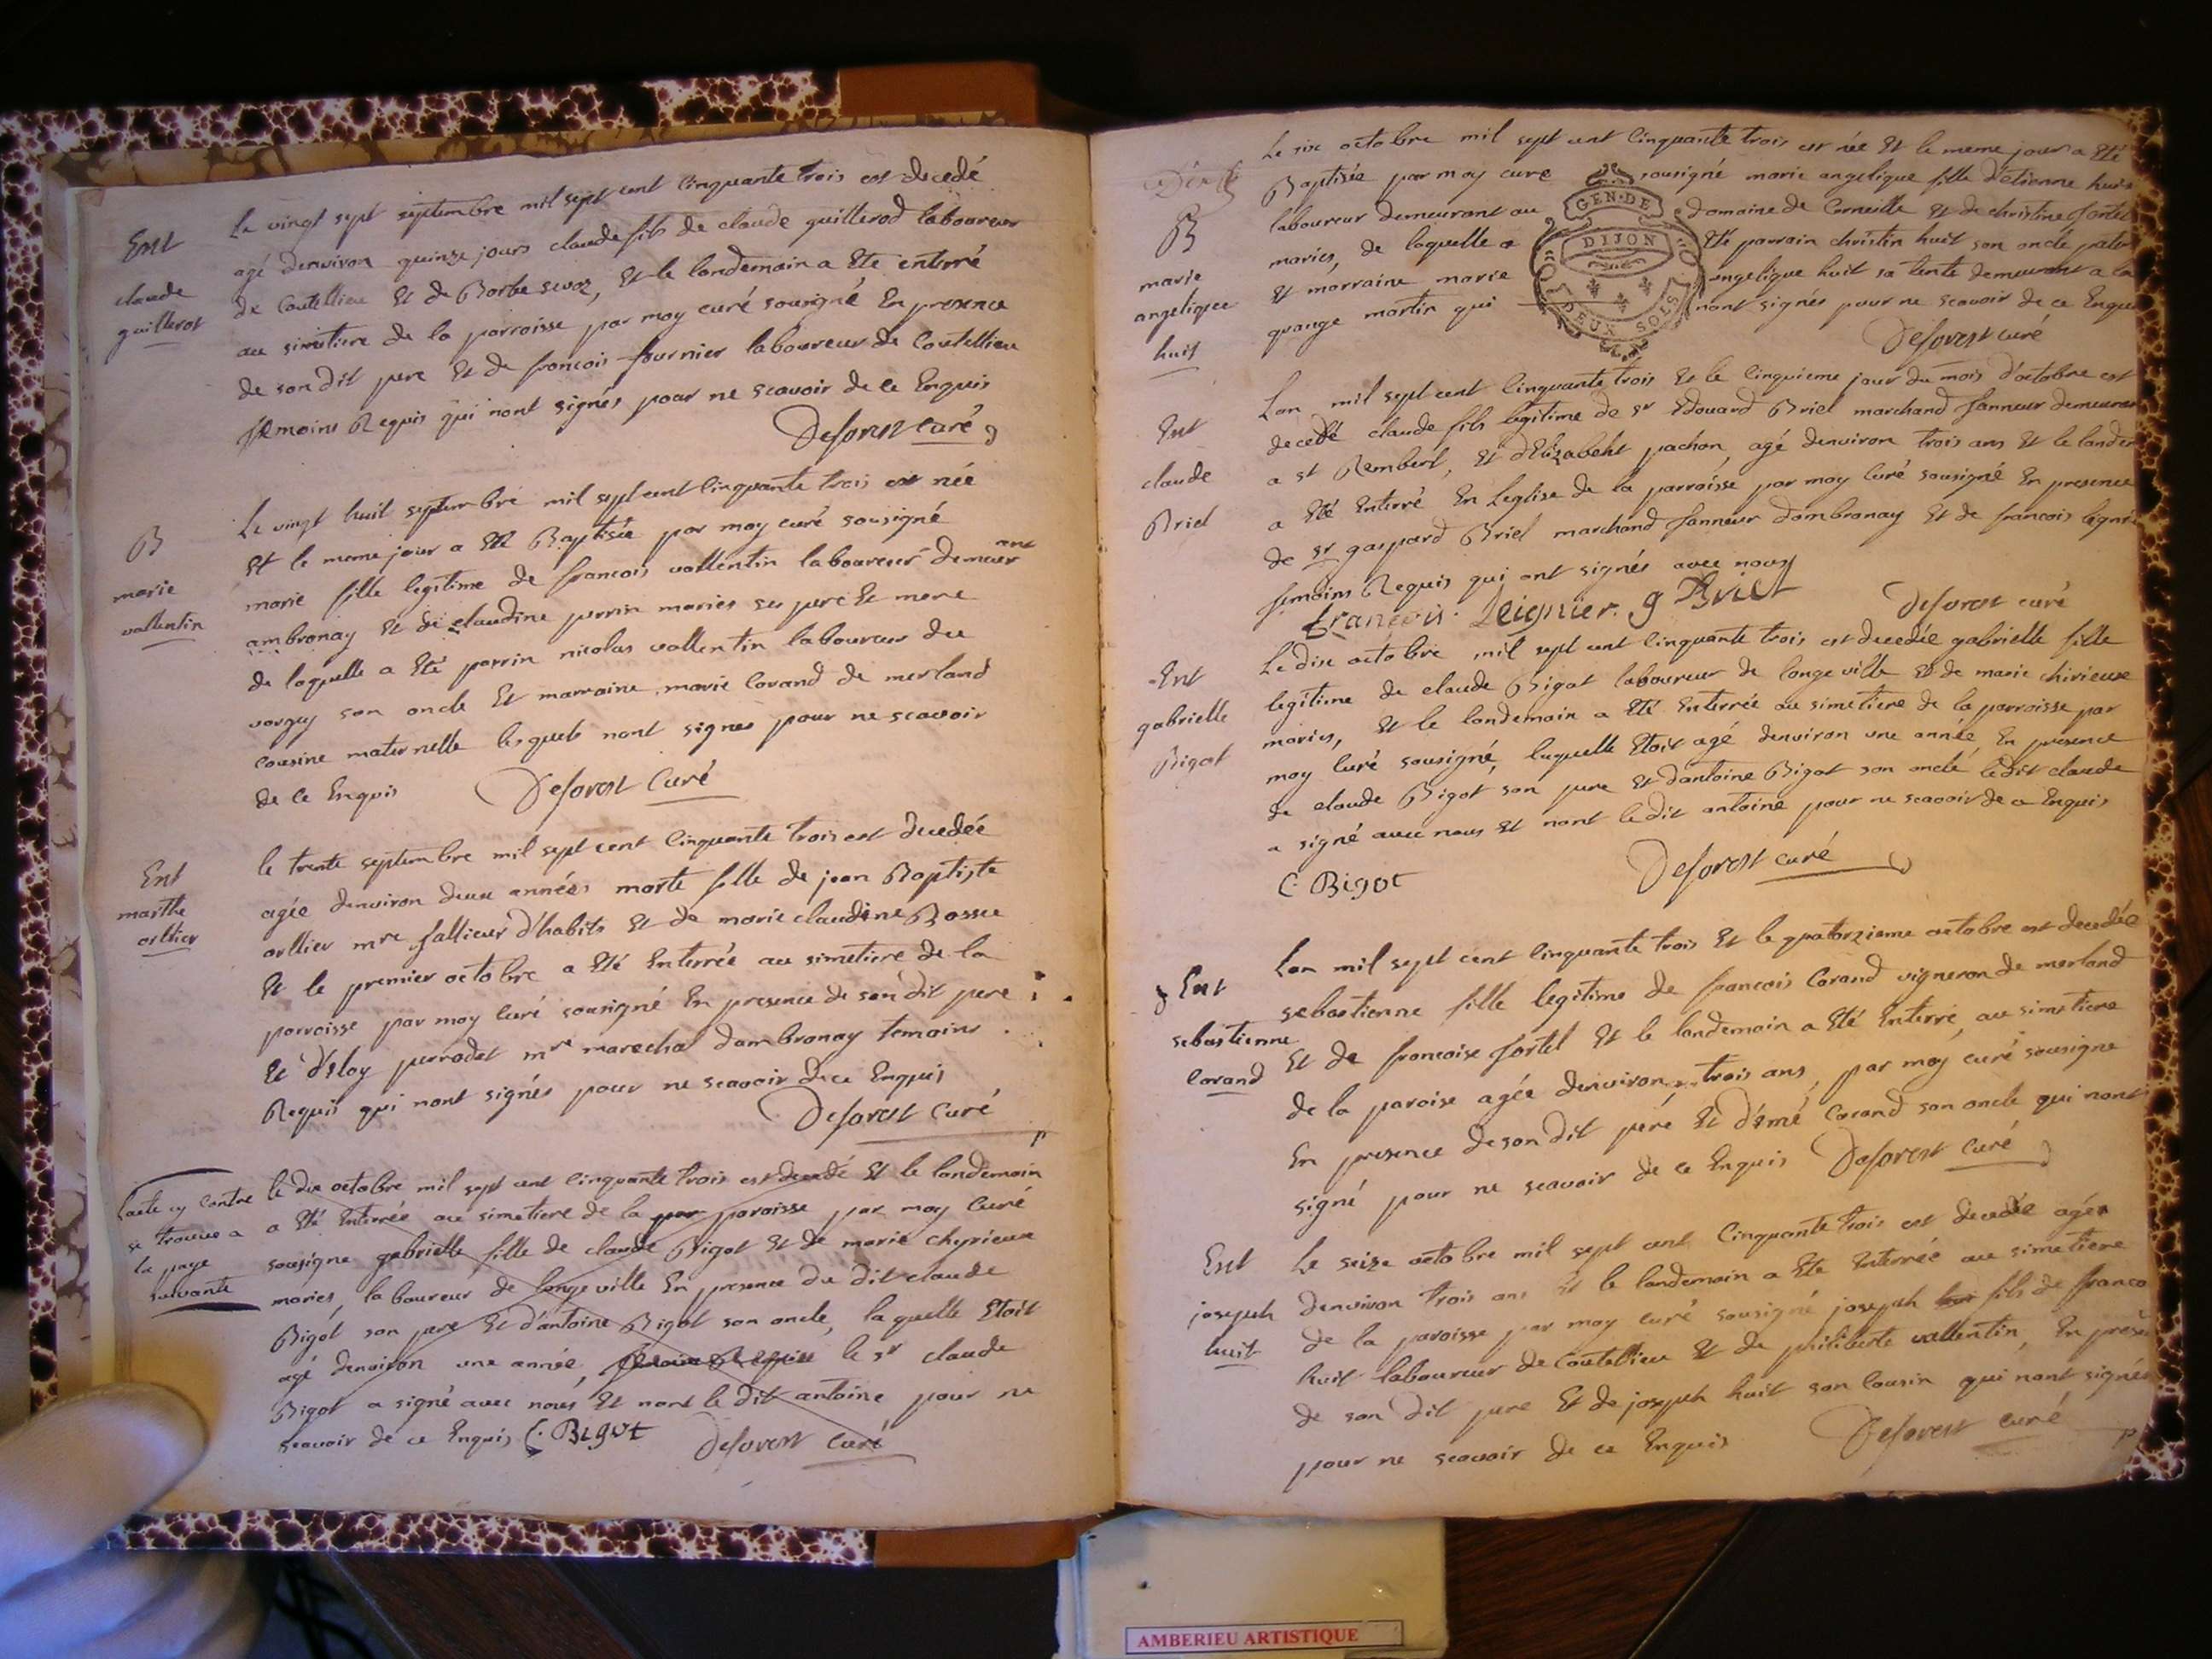 Ent
claude
guillerot
Le vingt sept septembre mil sept cent cinquante trois est decedé
agé denviron quinze jours claude fils de claude guillerod laboureur
de Coutellieu et de Borbe, et le landemain a Ete enterré
au simitiere de la parroisse par moy curé sousigné En presence
de son dit pere Et de francois fournier laboureur de Coutellieu
temoins Requis qui nont signés pour ne scavoir de ce Enquis
Deforest curé
B
marie
vallentin
Le vingt huit septembre mil sept cent cinquante trois est née
Et le meme jour a Eté Baptisée par moy curé sousigné
marie fille legitime de francois vallentin laboureur demeurant
ambronay Et de claudine perrin maries ses pere Et mere
de laquelle a Eté parrin nicolas vallentin laboureur du
vorgey son oncle Et marraine marie Corand de merland
cousine maternelle lesquels nont signes pour ne scavoir
de ce Enquis Deforest Curé
Ent
marthe
orllier
le trente septembre mil sept cent cinquante trois est decedée
agée denviron deux années marte fille de jean Baptiste
orllier mre tallieur d'habits Et de marie claudine Bossu
Et le premier octobre a Eté Enterrée au simetiere de la
parroisse par moy Curé sousigné En presence de son dit pere
Et d'Eloy perrodet mre marechal dambronay temoins
Requis qui nont signés pour ne scavoir de ce Enquis
Deforest Curé
Lacte cy contre
se trouve a
la page
suivante
le dix octobre mil sept cent cinquante trois est decedé Et le landemain
a Eté Enterrée au simetiere de la par paroisse par moy Curé
sousigne gabrielle fille de claude Bigot Et de marie chyrieux
maries, laboureur de longeville En presence du dit claude
Bigot son pere Et d'antoine Bigot son oncle, laquelle Etoit
agé denviron une année, temoins Requis le sr claude
Bigot a signé avec nous Et nont le dit antoine pour ne
scavoir de ce Enquis C. Bigot Deforest curé
B
marie
angelique
huit
Le six octobre mil sept cent cinquante trois est née Et le meme jour a Eté
Baptisée par moy curé sousigné marie angelique fille d'etienne huit
laboureur demeurant au domaine de Corneille Et de christine fortel
maries, de laquelle a Eté parrain christin huit son oncle pater
Et marraine marie angelique huit sa tente demeurant a la
grange martin qui nont signés pour ne scavoir de ce Enquis
GEN·DE
DIJON
DEUX SOLS
Deforest curé
Ent
claude
Briel
Lan mil sept cent cinquante trois Et le cinquieme jour du mois d'octobre est
decedé claude fils legitime de sr Edouard Briel marchand tanneur demeurant
a st Rembert, Et d'Elizabeht pachon, agé denviron trois ans Et le landem
a Eté Enterré En Leglise de la parroisse par moy Curé sousigné En presence
de sr gaspard Briel marchand tanneur dambronay Et de francois legnie
temoins Requis qui ont signés avec nous
François Leignier. g Briel Deforest curé
Ent
gabrielle
Bigot
Le dix octobre mil sept cent cinquante trois est decedée gabrielle fille
legitime de claude Bigot laboureur de longeville Et de marie chirieuse
maries, Et le landemain a Eté Enterrée au simetiere de la parroisse par
moy Curé sousigné, laquelle Etoit agé denviron une année En presence
de claude Bigot son pere Et dantoine Bigot son oncle ledit claude
a signé avec nous Et nont ledit antoine pour ne scavoir de ce Enquis
C. Bigot Deforest curé
Ent
sebastienne
Corand
Lan mil sept cent cinquante trois Et le quatorzieme octobre est decedée
sebastienne fille legitime de francois Corand vigneron de merland
Et de francoise fortel Et le landemain a Eté Enterré au simetiere
de la paroise agée denviron trois ans, par moy curé sousigne
En presence de son dit pere Et d'Emé Corand son oncle qui nont
signé pour ne scavoir de ce Enquis Deforest Curé
Ent
joseph
huit
Le seize octobre mil sept cent cinquante trois est decedée agée
denviron trois ans Et le landemain a Ete Enterrée au simetiere
de la paroisse par moy curé sousigné joseph fils de franco
huit laboureur de Coutellieu Et de philiberte vallentin En prese
de son dit pere Et de joseph huit son Cousin qui nont signés
pour ne scavoir de ce Enquis Deforest curé
AMBERIEU ARTISTIQUE